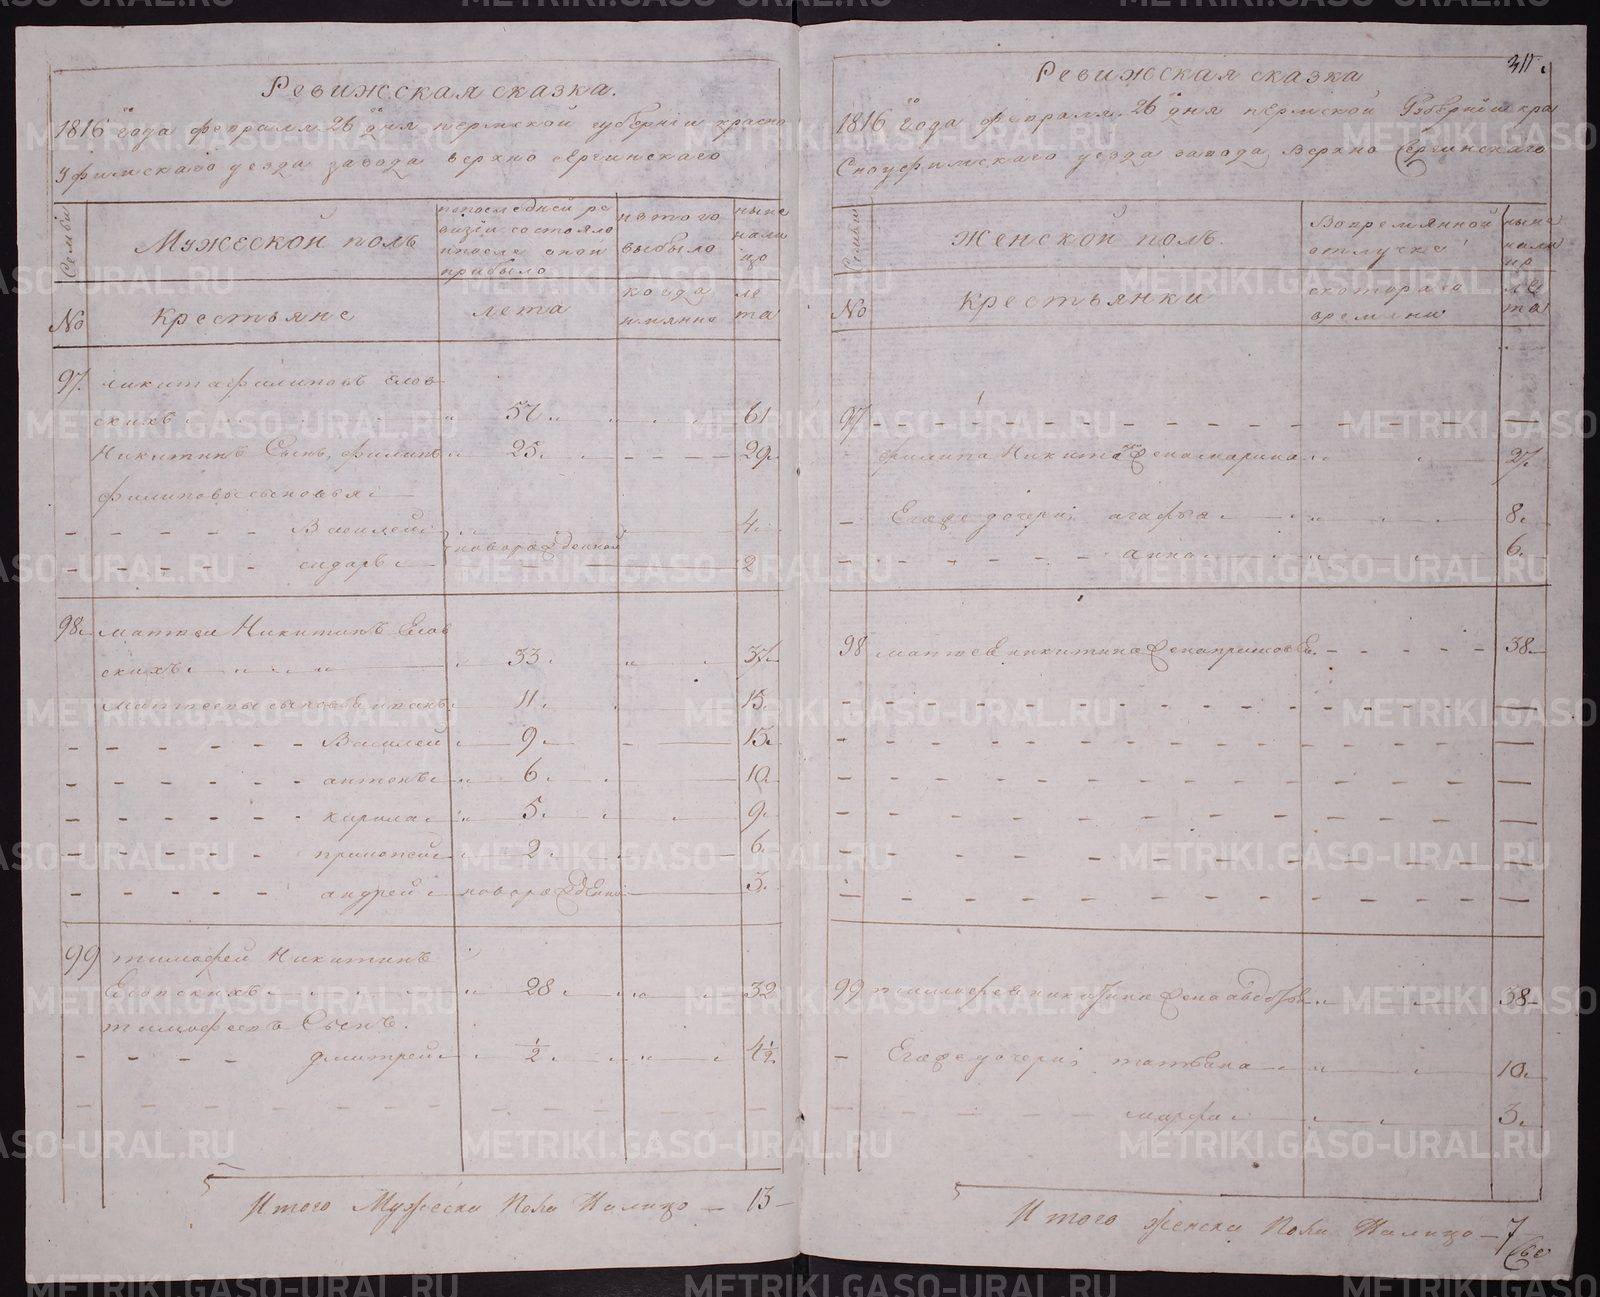 Ревижская сказка.
1816 года февраля 26 дня пермской губернии красно
уфимскаго уезда завода верхно сергинскаго
Семьи
Мужеской полъ
по последней ре
визии состояло
и после оной
прибыло
из того
выбыло
ныне
нали
цо
No
Крестьяне
лета
когда
имянно
ле
та
97. никита филиповъ елов
скихъ 57 61
Никитинъ Сынъ филипъ 25 29
филиповы сыновья
Василей 4
новорожденной
сидаръ 2
98. матвеи Никитинъ Елов
скихъ 33 37
матвеевы сыновья иванъ 11 15
Василей 9 13
антонъ 6 10
кирила 5 9
прокопей 2 6
андрей новорожденной 3
99 тимофей Никитинъ
Еловскихъ 28 32
тимофеевъ Сынъ
дмитрей 1/2 4 1/2
Итого Мужеска Пола Налицо – 13
311.
Ревижская сказка
1816 года февраля 26 дня пермской Губернии кра
сноуфимскаго уезда завода Верхно Сергинскаго
Семьи
Женской полъ.
Во временной
отлучке
ныне
нали
цо
No
Крестьянки
с котораго
времени
ле
та
97
филипа Никитина жена марина 27
Его же дочери агафья 8
анна 6
98 матвея никитина жена прасковья 38
99 тимофея никитина жена авдотья 38
Его же дочери татьяна 10
марфа 3
Итого женска Пола Налицо – 7
METRIKI.GASO-URAL.RU